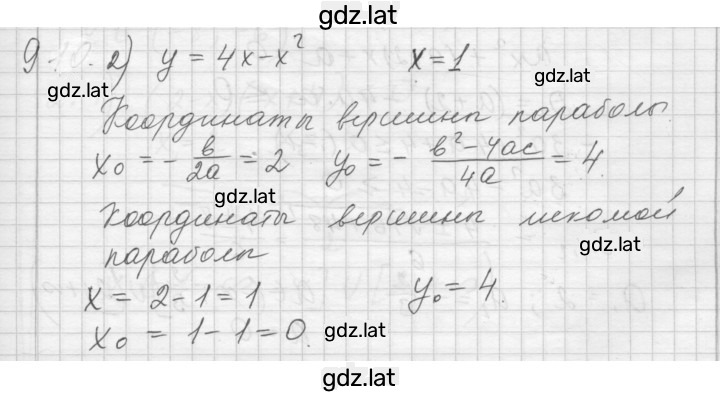 gdz.lat
9.10. 2) y = 4x - x² x = 1
gdz.lat
gdz.lat
Координаты вершины параболы.
x₀ = - в/2a = 2 y₀ = - (в² - 4ac)/4a = 4.
gdz.lat
Координаты вершины искомой
gdz.lat
параболы
x = 2 - 1 = 1 y₀ = 4.
x₀ = 1 - 1 = 0.
gdz.lat
gdz.lat